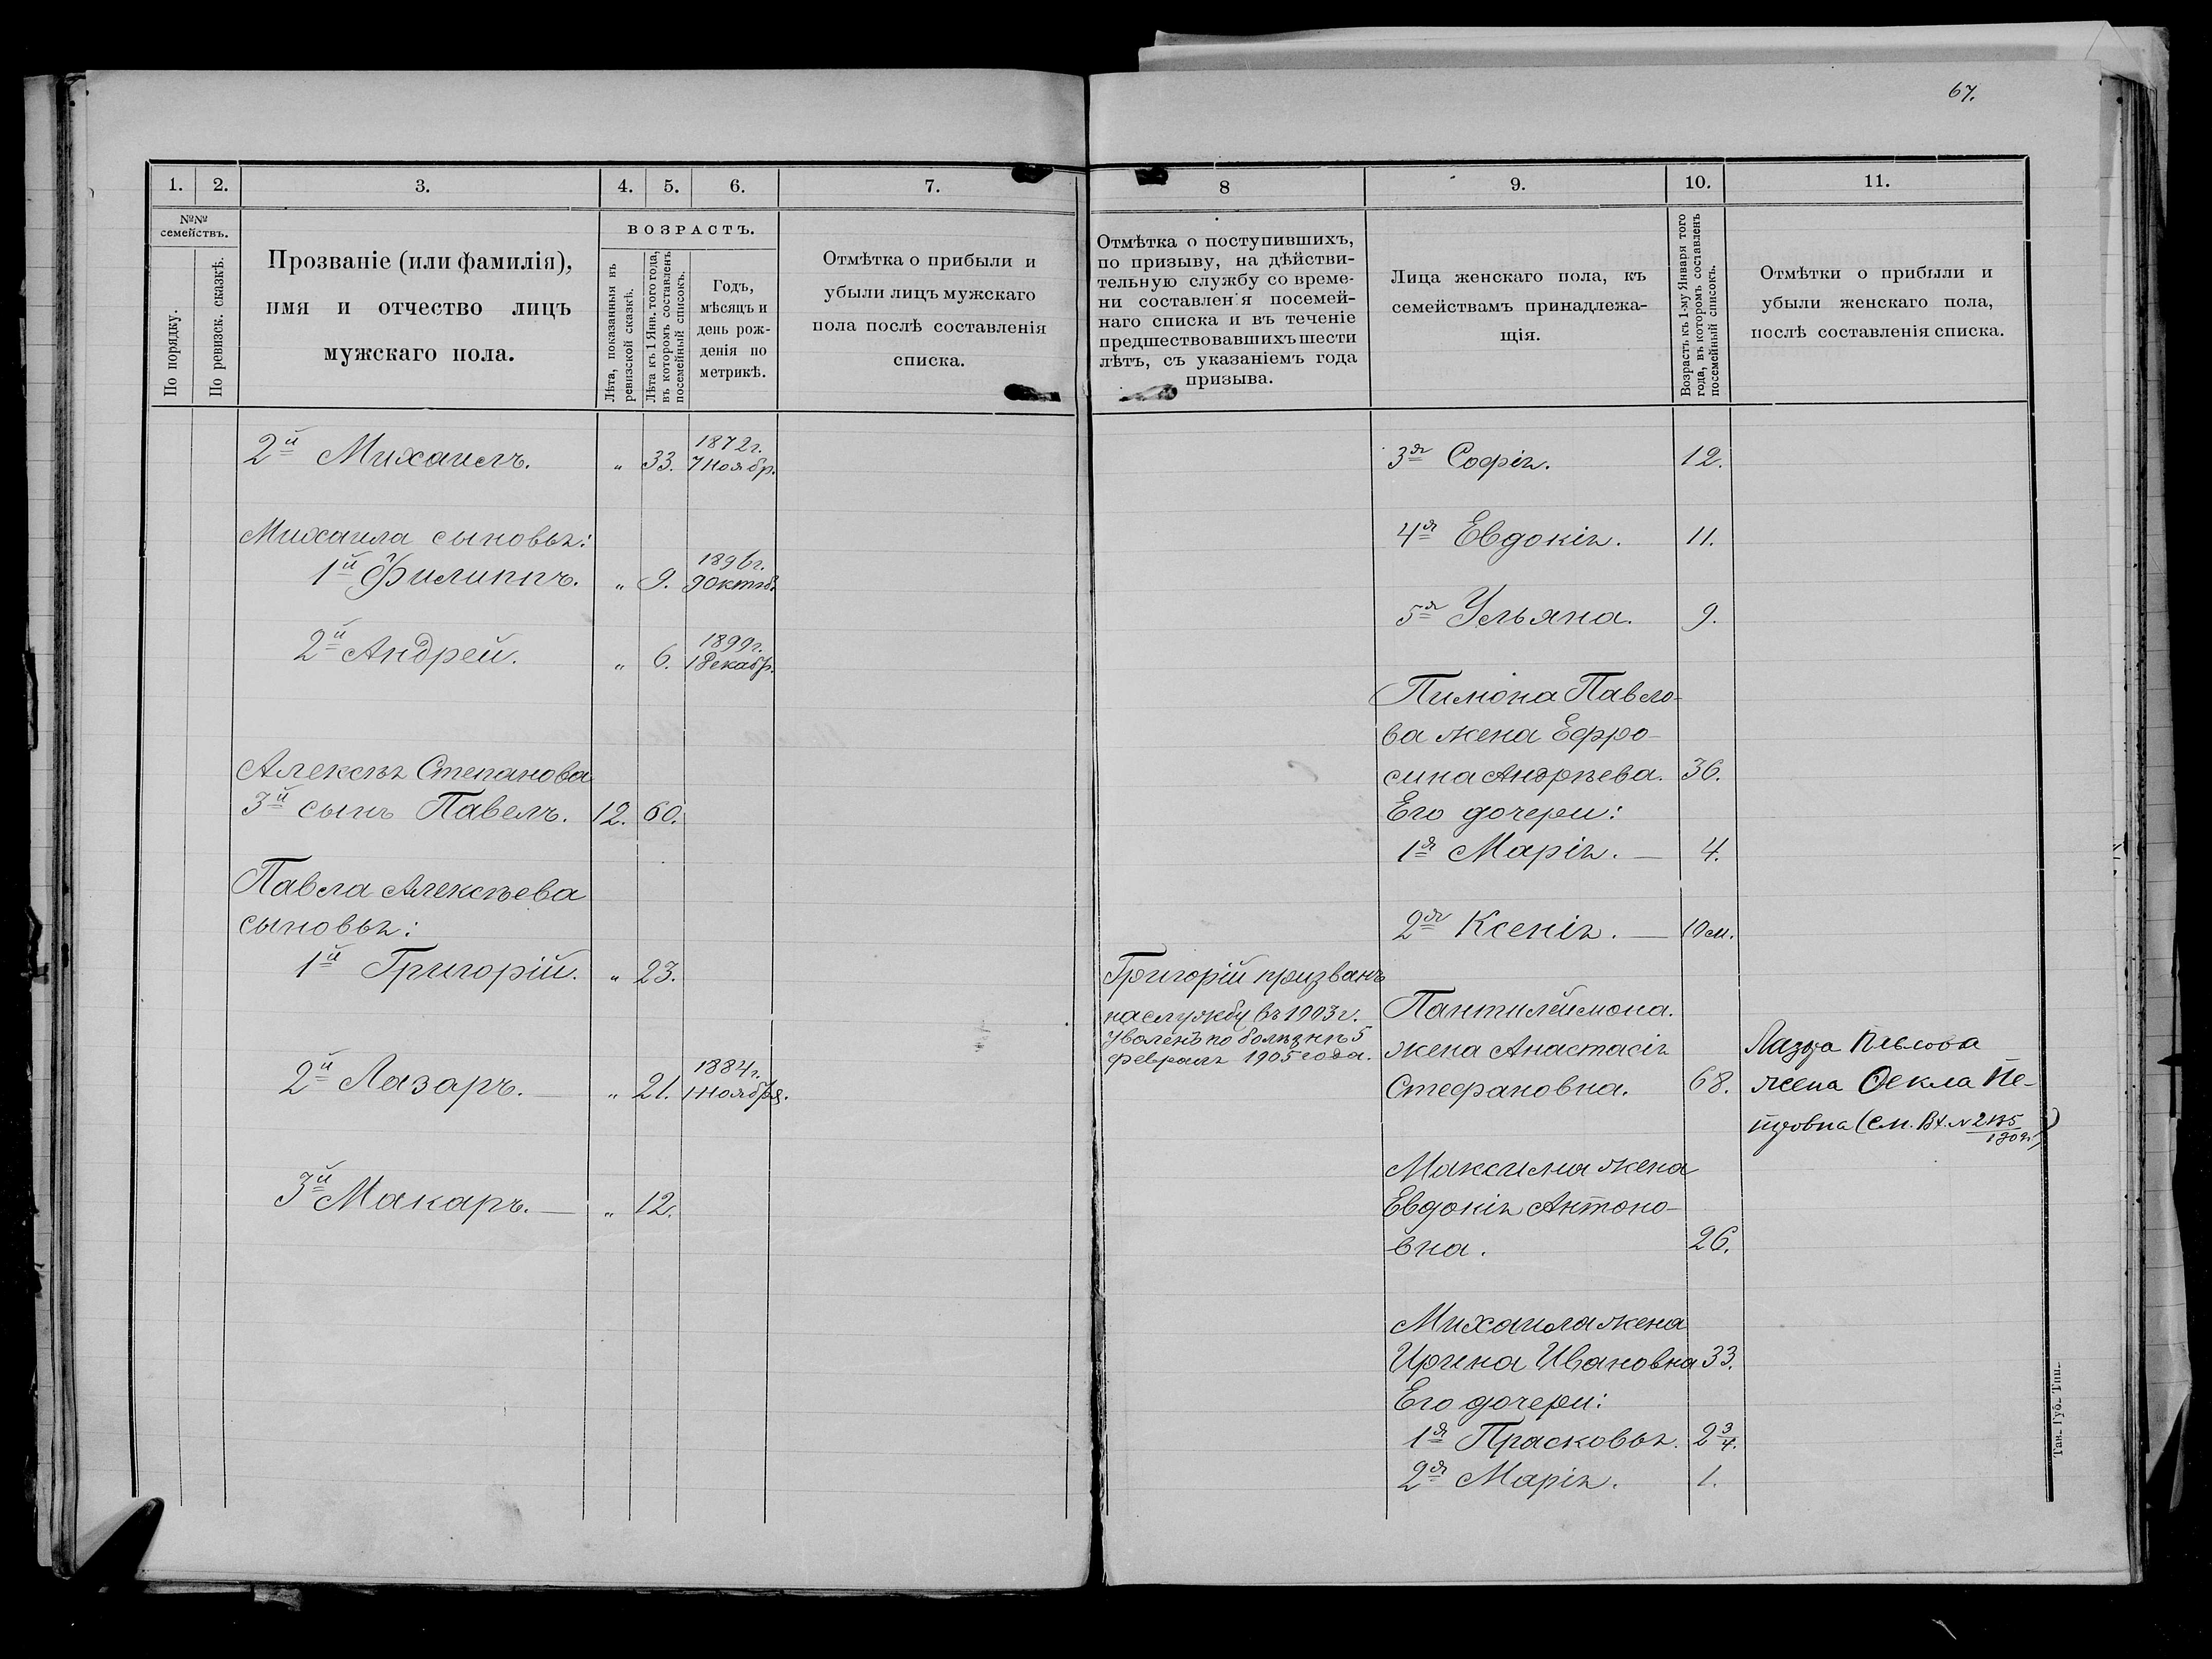 67.
1. 2. 3. 4. 5. 6. 7.
№№ семействъ.
По порядку.
По ревизск. сказкѣ.
Прозваніе (или фамилія),
имя и отчество лицъ
мужскаго пола.
ВОЗРАСТЪ.
Лѣта, показанныя въ
ревизской сказкѣ.
Лѣта къ 1 Янв. того года,
въ которомъ составленъ
посемейный списокъ.
Годъ,
мѣсяцъ и
день рож-
денія по
метрикѣ.
Отмѣтка о прибыли и
убыли лицъ мужскаго
пола послѣ составленія
списка.
2й Михаилъ. „ 33. 1872г.
7 Ноябр.
Михаила сыновья:
1й Филиппъ. „ 9. 1896г.
9 Октяб.
2й Андрей. „ 6. 1899г.
1 Декабр.
Алексѣя Степанова
3й сынъ Павелъ. 12. 60.
Павла Алексѣева
сыновья:
1й Григорій. „ 23.
2й Лазаръ. — „ 21. 1884г.
1 Ноября.
3й Макаръ. — „ 12.
8 9. 10. 11.
Отмѣтка о поступившихъ,
по призыву, на дѣйстви-
тельную службу со време-
ни составленія посемей-
наго списка и въ теченіе
предшествовавшихъ шести
лѣтъ, съ указаніемъ года
призыва.
Лица женскаго пола, къ
семействамъ принадлежа-
щія.
Возрастъ къ 1-му Января того
года, въ которомъ составленъ
посемейный списокъ.
Отмѣтки о прибыли и
убыли женскаго пола,
послѣ составленія списка.
3я Софія. 12.
4я Евдокія. 11.
5я Ульяна. 9.
Пимона Павло-
ва жена Ефро-
сина Андрѣева. 36.
Его дочери:
1я Марія. — 4.
2я Ксенія. — 10 м.
Григорій призванъ
на службу въ 1903 г.
Уволенъ по болѣзни 5
февраля 1905 года.
Пантилеймона.
жена Анастасія
Стефановна. 68.
Лазаря Павлова
жена Фекла Пе-
тровна (См. Вх. №
Максима жена
Евдокія Антоно-
вна. 26.
Михаила жена
Ирина Ивановна 33.
Его дочери:
1я Прасковья. 2 3/4.
2я Марія. 1.
Тав. Губ. Тип.